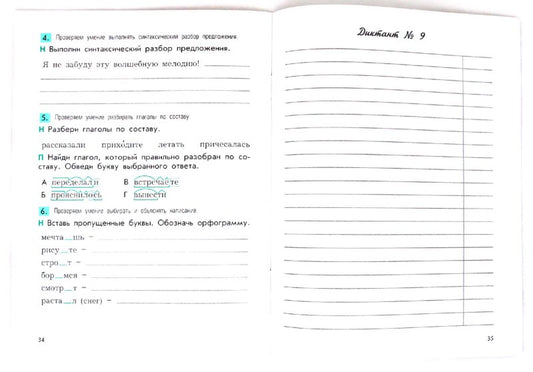 4. Проверяем умение выполнять синтаксический разбор предложения.
Н Выполни синтаксический разбор предложения.
Я не забуду эту волшебную мелодию!
5. Проверяем умение разбирать глаголы по составу
Н Разбери глаголы по составу.
рассказали приходите летать причесалась
П Найди глагол, который правильно разобран по со-
ставу. Обведи букву выбранного ответа.
А переделали В встречаете
Б прояснилось Г вынести
6. Проверяем умение выбирать и объяснять написания
Н Вставь пропущенные буквы. Обозначь орфограмму.
мечта__шь –
рису__те –
стро__т –
бор__мся –
смотр__т –
раста__л (снег) –
34
Диктант № 9
35